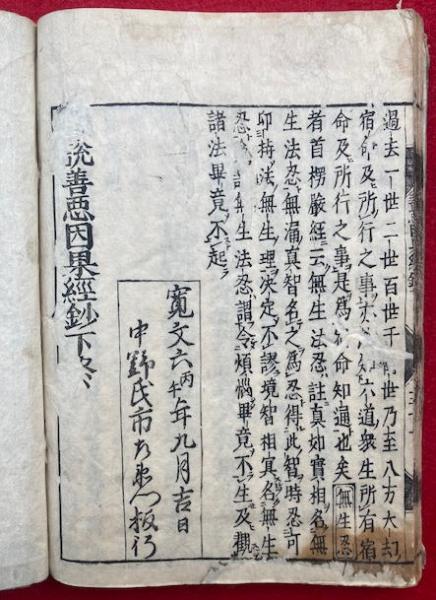 過去一世二世百世千世乃至八万大劫
宿命及所行之事亦知六道衆生所有宿
命及所行之事是為宿命知遍也矣 無生忍
者首楞嚴經云無生法忍註真如實相名無
生法忍無漏真智名之為忍得此智時忍可
印持法無生理決定不謬境智相冥名無生
忍 無生法忍謂令煩悩畢竟不生及觀
諸法畢竟不起
寛文六丙午年九月吉日
中野氏市右衛門板行
説善悪因果經鈔下終